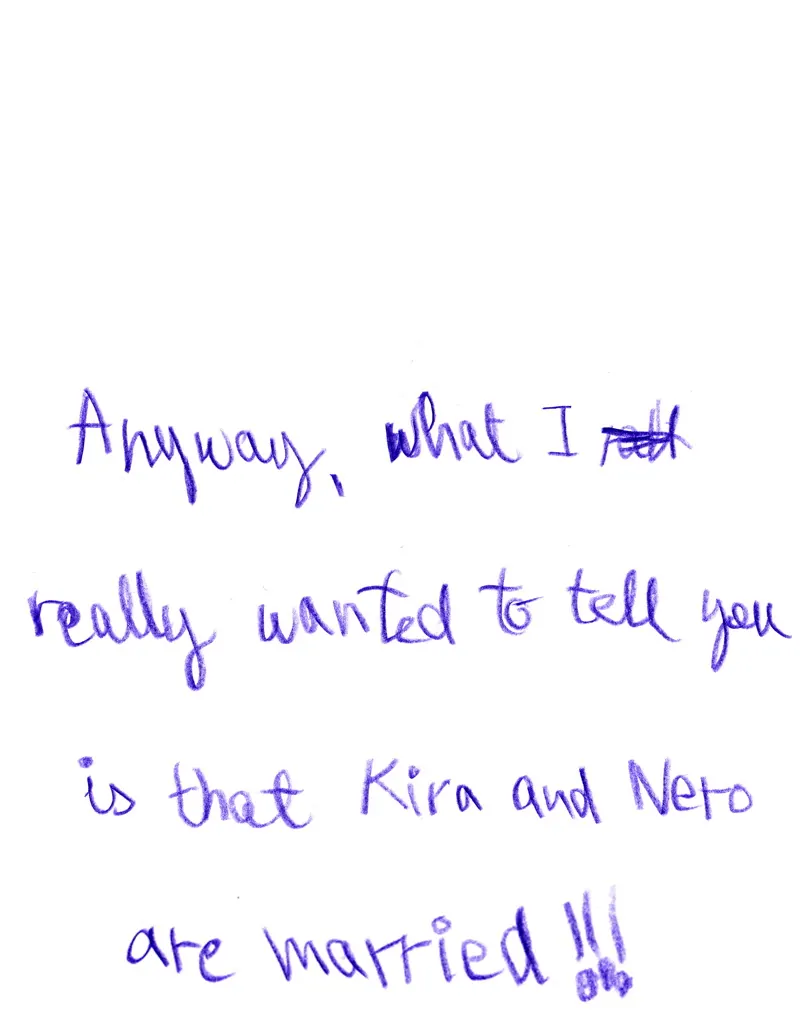 Anyway, what I
really wanted to tell you
is that Kira and Nero
are married!!!